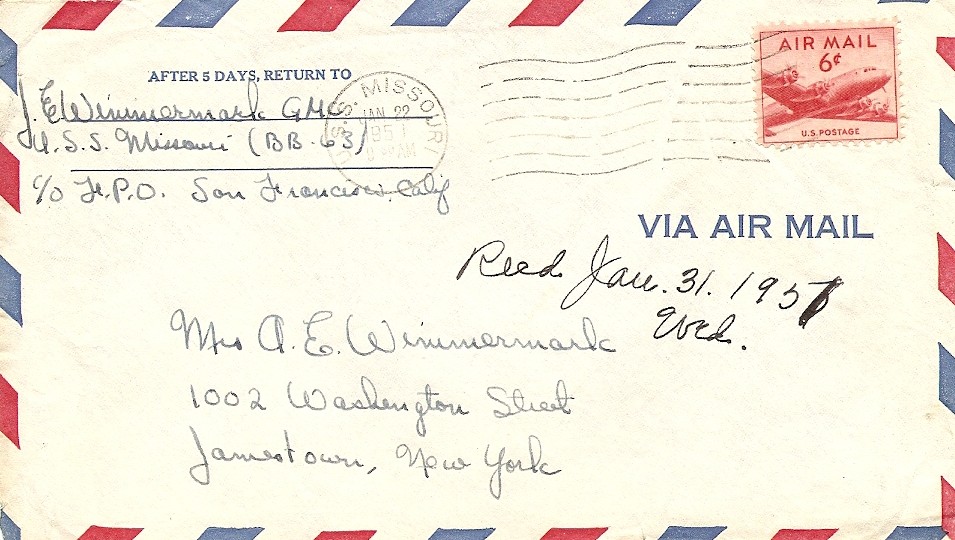 AFTER 5 DAYS, RETURN TO
J. E. Wimmermark GMC
U.S.S. Missouri (BB-63)
c/o F.P.O. San Francisco, Calif
U.S.S. MISSOURI
JAN 22
1951
AM
AIR MAIL
6¢
U.S. POSTAGE
VIA AIR MAIL
Recd Jan. 31. 1951
Wed.
Mrs A. E. Wimmermark
1002 Washington Street
Jamestown, New York